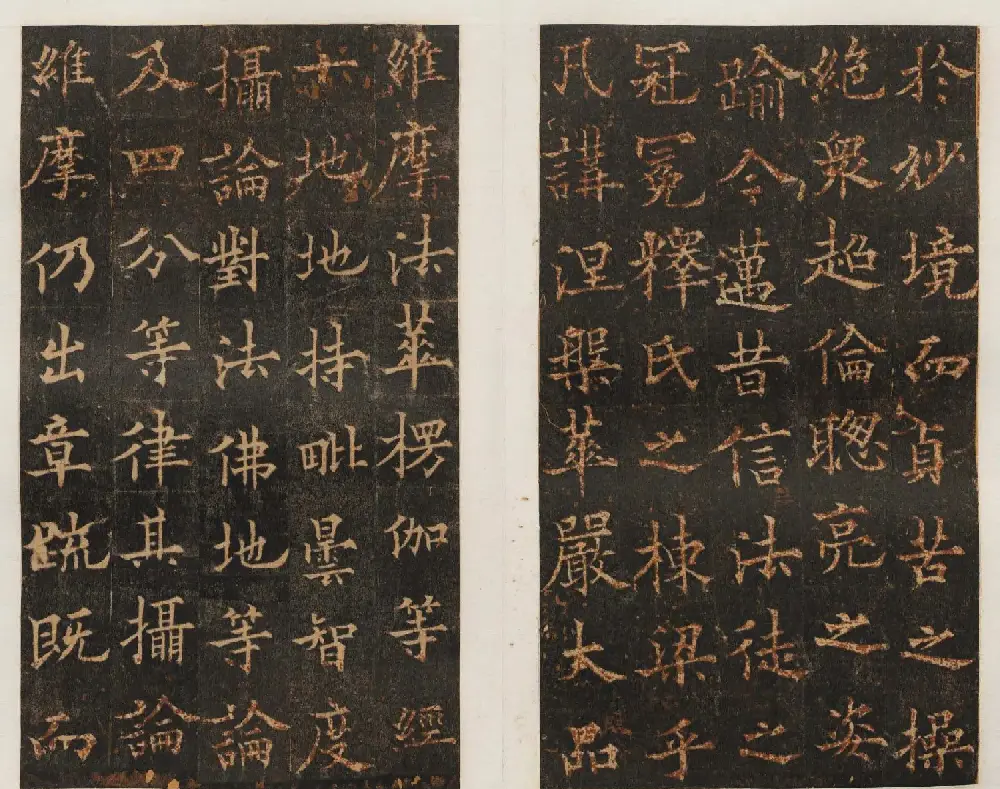 於妙境而貞苦之操
絶衆超倫聦亮之姿
踰今邁昔信法徒之
冠冕釋氏之棟梁乎
凡講涅槃華嚴大品
維摩法華楞伽等經
十地地持毗曇智度
攝論對法佛地等論
及四分等律其攝論
維摩仍出章疏既而